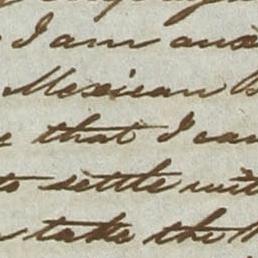 I am
Mexican
that I can
to settle with
take the